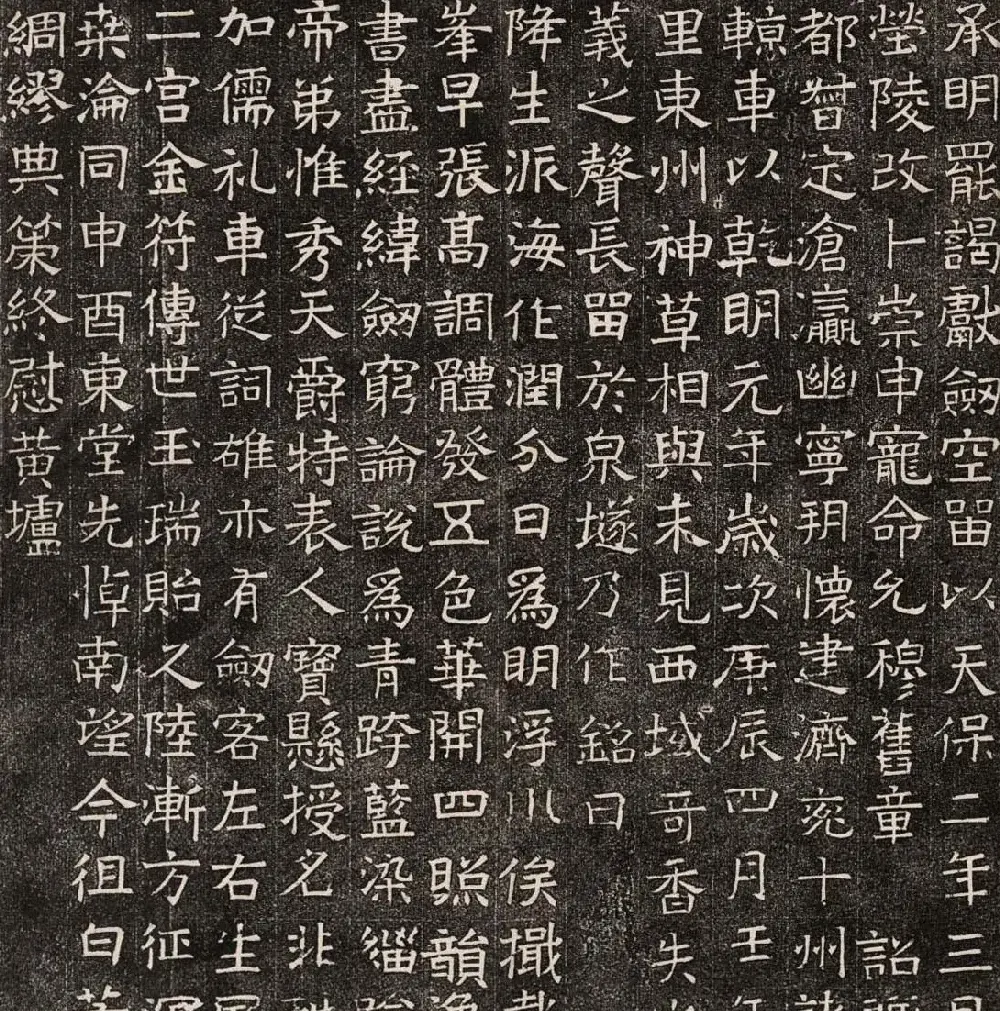 承明罷謁獻劔空留以天保二年三月
塋陵改卜崇申寵命允穆舊章詔
都督定滄瀛幽寧朔懷建濟兖十州諸
輬車以乾明元年歲次庚辰四月壬午
里東州神草相與未見西域奇香失
義之聲長留於泉𡑞乃作銘曰
降生派海作潤分日爲明浮川俟檝
峯早張高調體發五色華開四照韻
書盡經緯劔窮論說爲青跨藍染緇
帝弟惟秀天爵特表人寶懸授名非
加儒礼車從詞雄亦有劔客左右生
二宮金符傳世玉瑞貽久陸漸方征
桒淪同申酉東堂先悼南望今徂白
綢繆典策終慰黃壚